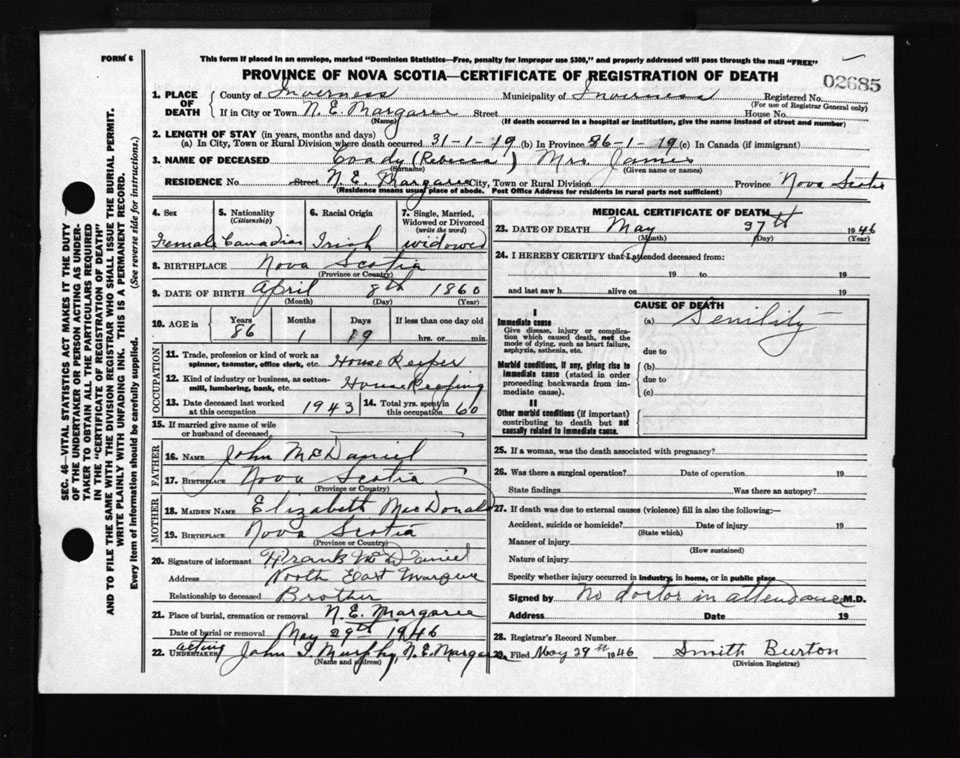 FORM 6
This form if placed in an envelope, marked "Dominion Statistics—Free, penalty for improper use $300," and properly addressed will pass through the mail "FREE"
PROVINCE OF NOVA SCOTIA—CERTIFICATE OF REGISTRATION OF DEATH
02685
1. PLACE OF DEATH
County of Inverness Municipality of Inverness Registered No.
(For use of Registrar General only)
If in City or Town N. E. Margaree Street House No.
(Name) (If death occurred in a hospital or institution, give the name instead of street and number)
2. LENGTH OF STAY (in years, months and days)
(a) In City, Town or Rural Division where death occurred 31-1-19 (b) In Province 86-1-19 (c) In Canada (if immigrant)
3. NAME OF DECEASED Coady (Rebecca) Mrs James
(Surname) (Given name or names)
RESIDENCE No Street N. E. Margaree City, Town or Rural Division Province Nova Scotia
(Residence means usual place of abode. Post Office Address for residents in rural parts not sufficient)
4. Sex
Female
5. Nationality
(Citizenship)
Canadian
6. Racial Origin
Irish
7. Single, Married, Widowed or Divorced
(write the word)
widowed
8. BIRTHPLACE Nova Scotia
(Province or Country)
9. DATE OF BIRTH April 8th 1860
(Month) (Day) (Year)
10. AGE in
Years Months Days If less than one day old
86 1 19 hrs. or min.
OCCUPATION
11. Trade, profession or kind of work as spinner, teamster, office clerk, etc. House Keeper
12. Kind of industry or business, as cotton-mill, lumbering, bank, etc. House Keeping
13. Date deceased last worked at this occupation 1943
14. Total yrs. spent in this occupation 60
15. If married give name of wife or husband of deceased
FATHER
16. NAME John McDaniel
17. BIRTHPLACE Nova Scotia
(Province or Country)
MOTHER
18. MAIDEN NAME Elizabeth MacDonald
19. BIRTHPLACE Nova Scotia
(Province or Country)
20. Signature of informant Frank McDaniel
Address North East Margaree
Relationship to deceased Brother
21. Place of burial, cremation or removal N. E. Margaree
Date of burial or removal May 29th 1946
acting
22. UNDERTAKER John I. Murphy, N. E. Margaree
(Name and address)
MEDICAL CERTIFICATE OF DEATH
23. DATE OF DEATH May 27th 1946
(Month) (Day) (Year)
24. I HEREBY CERTIFY that I attended deceased from
19 to 19
and last saw h alive on 19
CAUSE OF DEATH
I
Immediate cause
Give disease, injury or complication which caused death, not the mode of dying, such as heart failure, asphyxia, asthenia, etc.
(a) Senility
due to
Morbid conditions, if any, giving rise to immediate cause (stated in order proceeding backwards from immediate cause).
(b)
due to
(c)
II
Other morbid conditions (if important) contributing to death but not causally related to immediate cause.
25. If a woman, was the death associated with pregnancy?
26. Was there a surgical operation? Date of operation 19
State findings Was there an autopsy?
27. If death was due to external causes (violence) fill in also the following:—
Accident, suicide or homicide? Date of injury 19
(State which)
Manner of injury
(How sustained)
Nature of injury
Specify whether injury occurred in industry, in home, or in public place
Signed by No doctor in attendance M.D.
Address Date 19
28. Registrar's Record Number
29. Filed May 29th 1946 Smith Burton
(Division Registrar)
SEC. 46—VITAL STATISTICS ACT MAKES IT THE DUTY
OF THE UNDERTAKER OR PERSON ACTING AS UNDER-
TAKER TO OBTAIN ALL THE PARTICULARS REQUIRED
IN THE "CERTIFICATE OF REGISTRATION OF DEATH"
AND TO FILE THE SAME WITH THE DIVISION REGISTRAR WHO SHALL ISSUE THE BURIAL PERMIT.
WRITE PLAINLY WITH UNFADING INK. THIS IS A PERMANENT RECORD.
Every item of information should be carefully supplied. (See reverse side for instructions.)